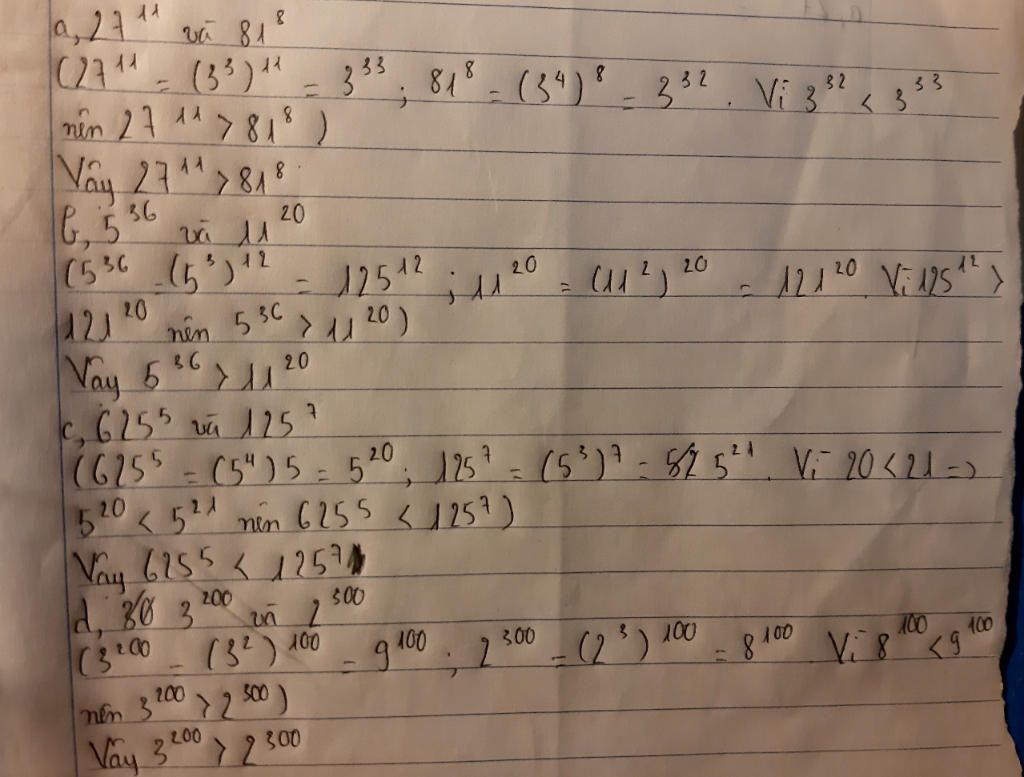 a, 27¹¹ và 81⁸
(27¹¹ = (3³)¹¹ = 3³³ ; 81⁸ = (3⁴)⁸ = 3³². Vì 3³² < 3³³
nên 27¹¹ > 81⁸)
Vậy 27¹¹ > 81⁸
b, 5³⁶ và 11²⁰
(5³⁶ = (5³)¹² = 125¹² ; 11²⁰ = (11²)²⁰ = 121²⁰. Vì 125¹² >
121²⁰ nên 5³⁶ > 11²⁰)
Vậy 5³⁶ > 11²⁰
c, 625⁵ và 125⁷
(625⁵ = (5⁴)5 = 5²⁰ ; 125⁷ = (5³)⁷ = 5²¹. Vì 20 < 21 =>
5²⁰ < 5²¹ nên 625⁵ < 125⁷)
Vậy 625⁵ < 125⁷
d, 3²⁰⁰ và 2³⁰⁰
(3²⁰⁰ = (3²)¹⁰⁰ = 9¹⁰⁰ ; 2³⁰⁰ = (2³)¹⁰⁰ = 8¹⁰⁰. Vì 8¹⁰⁰ < 9¹⁰⁰
nên 3²⁰⁰ > 2³⁰⁰)
Vậy 3²⁰⁰ > 2³⁰⁰